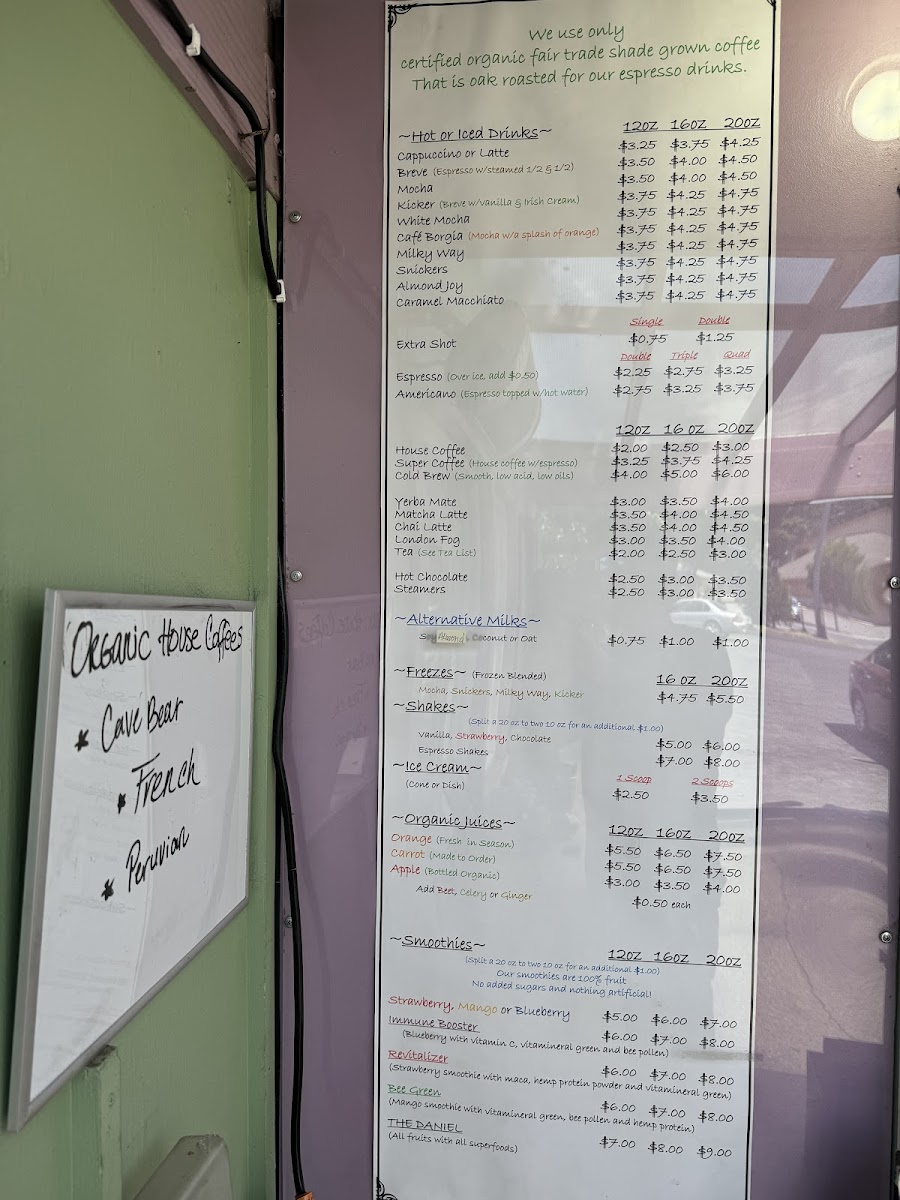 We use only
certified organic fair trade shade grown coffee
That is oak roasted for our espresso drinks.
~Hot or Iced Drinks~ 12oz 16oz 20oz
Cappuccino or Latte $3.25 $3.75 $4.25
Breve (Espresso w/steamed 1/2 & 1/2) $3.50 $4.00 $4.50
Mocha $3.50 $4.00 $4.50
Kicker (Breve w/vanilla & Irish Cream) $3.75 $4.25 $4.75
White Mocha $3.75 $4.25 $4.75
Café Borgia (Mocha w/a splash of orange) $3.75 $4.25 $4.75
Milky Way $3.75 $4.25 $4.75
Snickers $3.75 $4.25 $4.75
Almond Joy $3.75 $4.25 $4.75
Caramel Macchiato $3.75 $4.25 $4.75
Single Double
Extra Shot $0.75 $1.25
Double Triple Quad
Espresso (Over ice, add $0.50) $2.25 $2.75 $3.25
Americano (Espresso topped w/hot water) $2.75 $3.25 $3.75
12oz 16 oz 20oz
House Coffee $2.00 $2.50 $3.00
Super Coffee (House coffee w/espresso) $3.25 $3.75 $4.25
Cold Brew (Smooth, low acid, low oils) $4.00 $5.00 $6.00
Yerba Mate $3.00 $3.50 $4.00
Matcha Latte $3.50 $4.00 $4.50
Chai Latte $3.50 $4.00 $4.50
London Fog $3.00 $3.50 $4.00
Tea (See Tea List) $2.00 $2.50 $3.00
Hot Chocolate $2.50 $3.00 $3.50
Steamers $2.50 $3.00 $3.50
~Alternative Milks~
Soy Almond Coconut or Oat $0.75 $1.00 $1.00
~Freezes~ (Frozen Blended) 16 oz 20oz
Mocha, Snickers, Milky Way, Kicker $4.75 $5.50
~Shakes~
(Split a 20 oz to two 10 oz for an additional $1.00)
Vanilla, Strawberry, Chocolate $5.00 $6.00
Espresso Shakes $7.00 $8.00
~Ice Cream~ 1 Scoop 2 Scoops
(Cone or Dish) $2.50 $3.50
~Organic Juices~ 12oz 16oz 20oz
Orange (Fresh in Season) $5.50 $6.50 $7.50
Carrot (Made to Order) $5.50 $6.50 $7.50
Apple (Bottled Organic) $3.00 $3.50 $4.00
Add Beet, Celery or Ginger $0.50 each
~Smoothies~ 12oz 16oz 20oz
(Split a 20 oz to two 10 oz for an additional $1.00)
Our smoothies are 100% fruit
No added sugars and nothing artificial!
Strawberry, Mango or Blueberry $5.00 $6.00 $7.00
Immune Booster $6.00 $7.00 $8.00
(Blueberry with vitamin C, vitamineral green and bee pollen)
Revitalizer $6.00 $7.00 $8.00
(Strawberry smoothie with maca, hemp protein powder and vitamineral green)
Bee Green $6.00 $7.00 $8.00
(Mango smoothie with vitamineral green, bee pollen and hemp protein)
THE DANIEL $7.00 $8.00 $9.00
(All fruits with all superfoods)
Organic House Coffees
* Cavé Bear
* French
* Peruvian